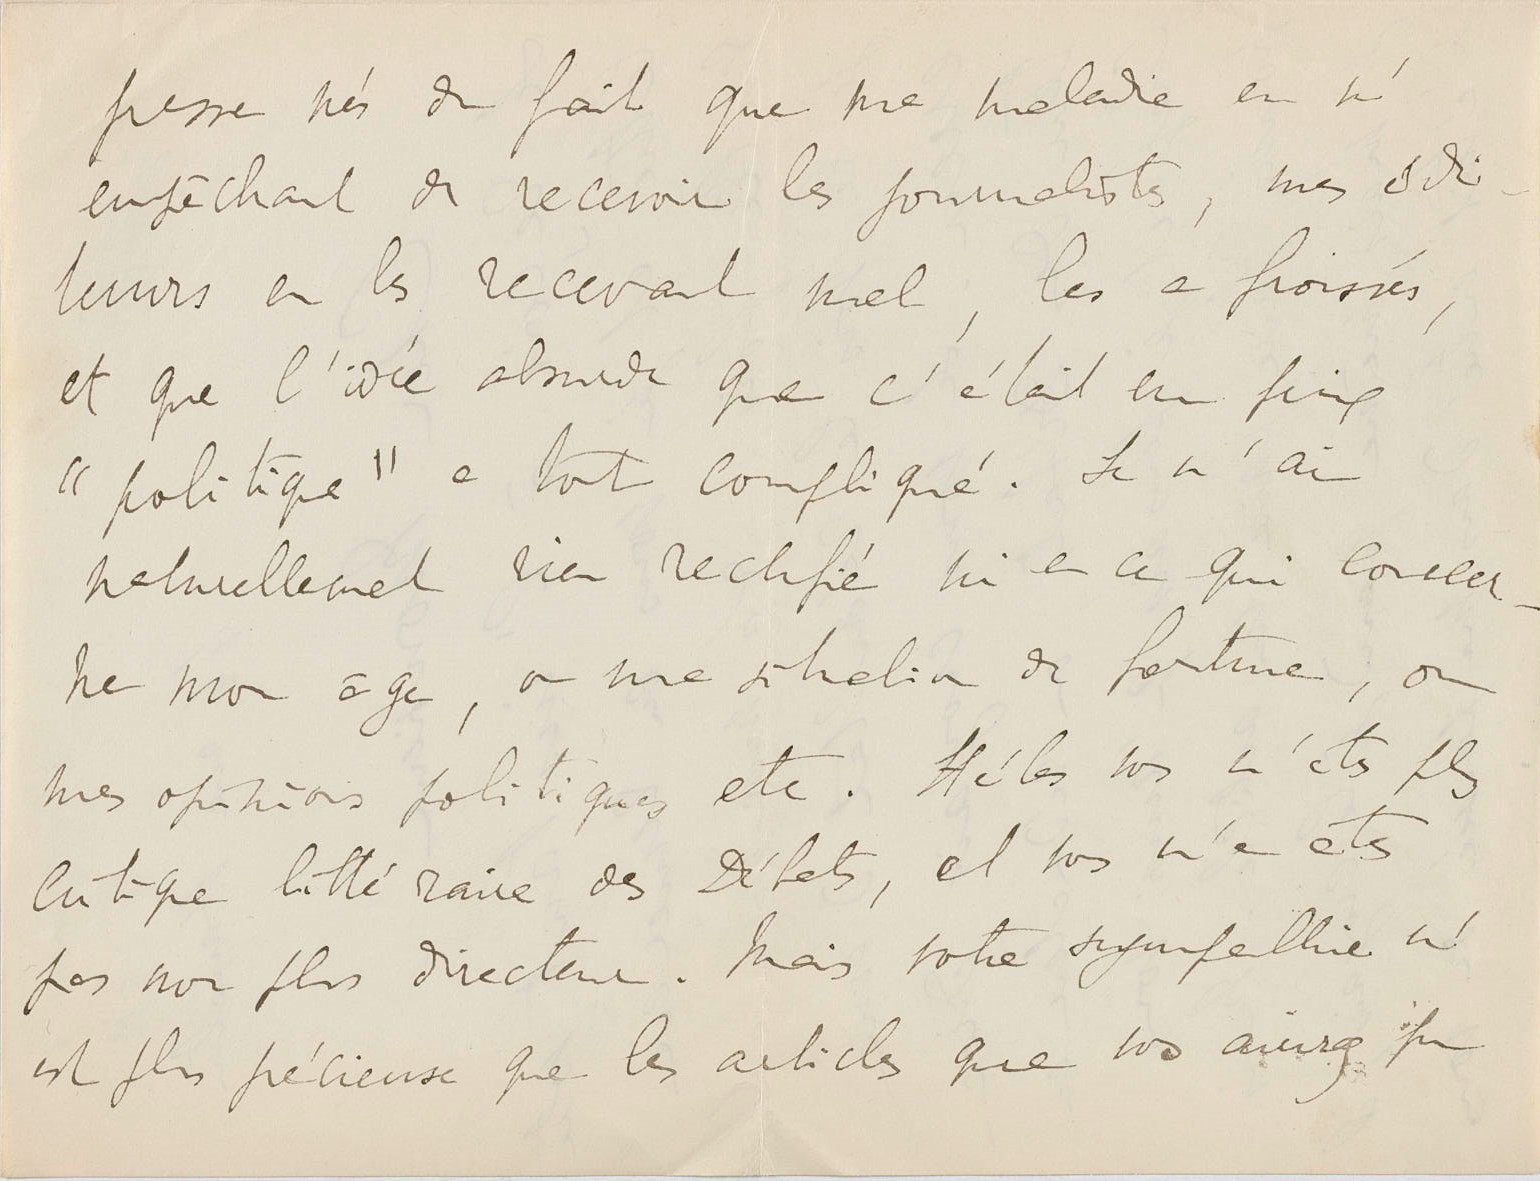 presse nés du fait que ma maladie en m'
empêchant de recevoir les journalistes, mes édi-
teurs en les recevant mal, les a froissés,
et que l'idée absurde que c'était un prix
"politique" a tout compliqué. Je n'ai
naturellement rien rectifié ni en ce qui concer-
ne mon âge, ou ma situation de fortune, ou
mes opinions politiques etc. Hélas vos n'êtes plus
critique littéraire des Débats, et vos n'en êtes
pas non plus directeur. Mais votre sympathie m'
est plus précieuse que les articles que vos auriez pu